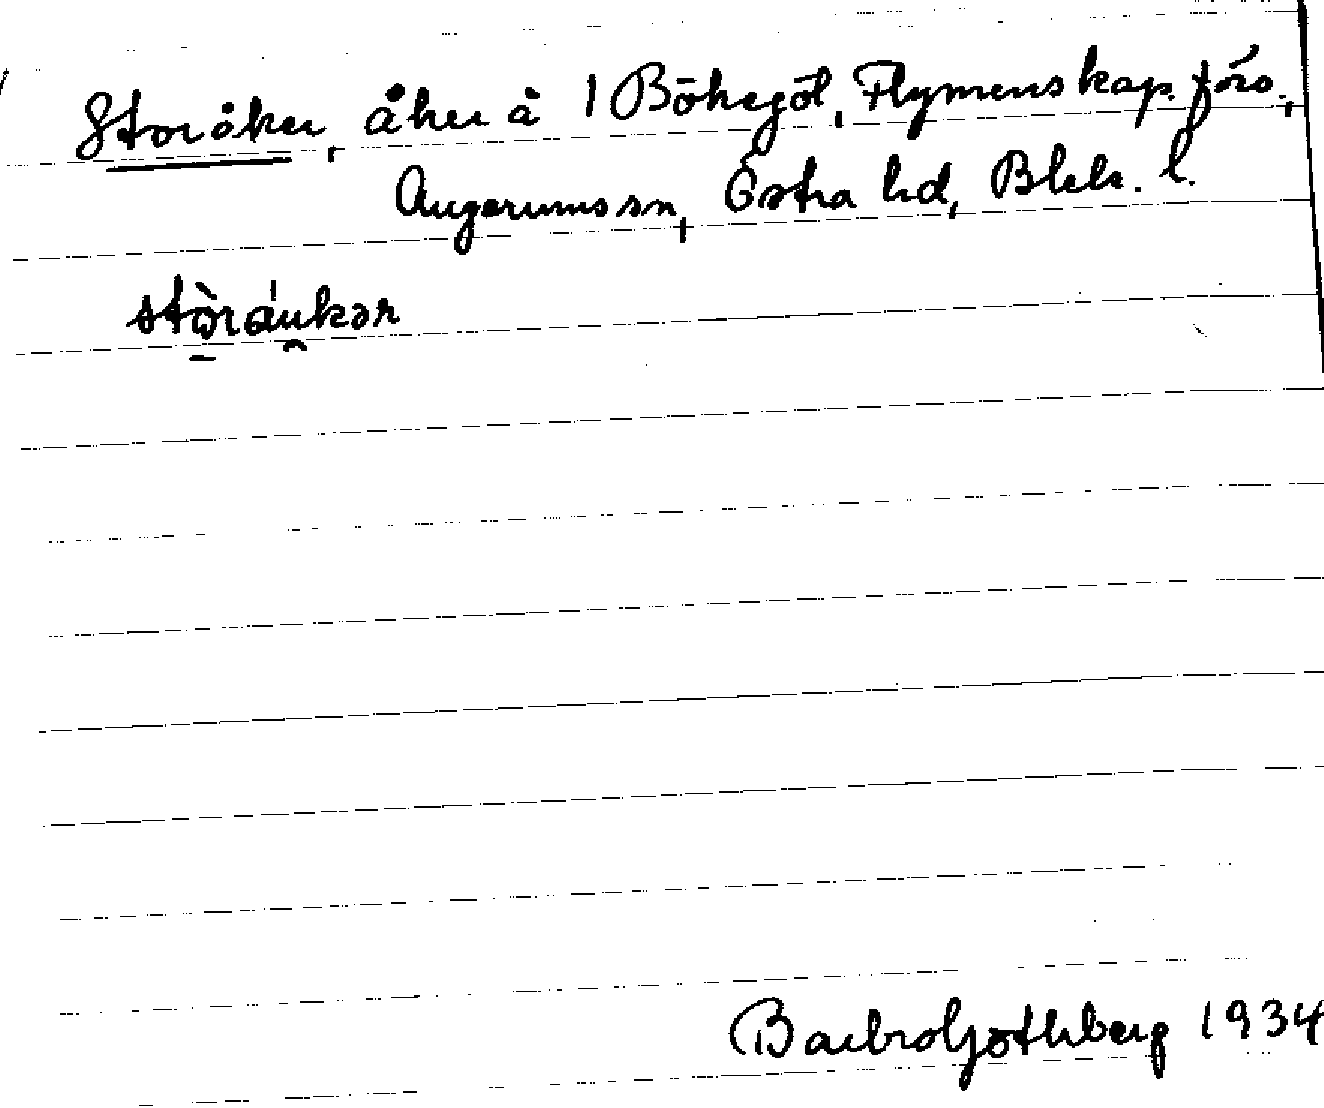 Storåker, åker å 1 Bökegöl, Flymens kap. förs.,
Augerums sn, Östra hd, Blek. l.
stòráukər
Barbro Göthberg 1934